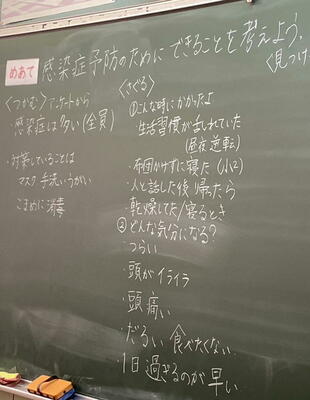 めあて 感染症予防のためにできることを考えよう。
<つかむ> アンケートから
・感染症は多い(全員)
・対策していることは
マスク 手洗いうがい
こまめに消毒
<さぐる>
①こんな時にかかったよ
・生活習慣が乱れていた
(昼夜逆転)
・布団かけずに寝た(小2)
・人と話した後 帰ったら
・乾燥してた/寝るとき
②どんな気分になる?
・つらい
・頭がイライラ
・頭痛い
・だるい 食べたくない
・1日過ぎるのが早い
<見つけ